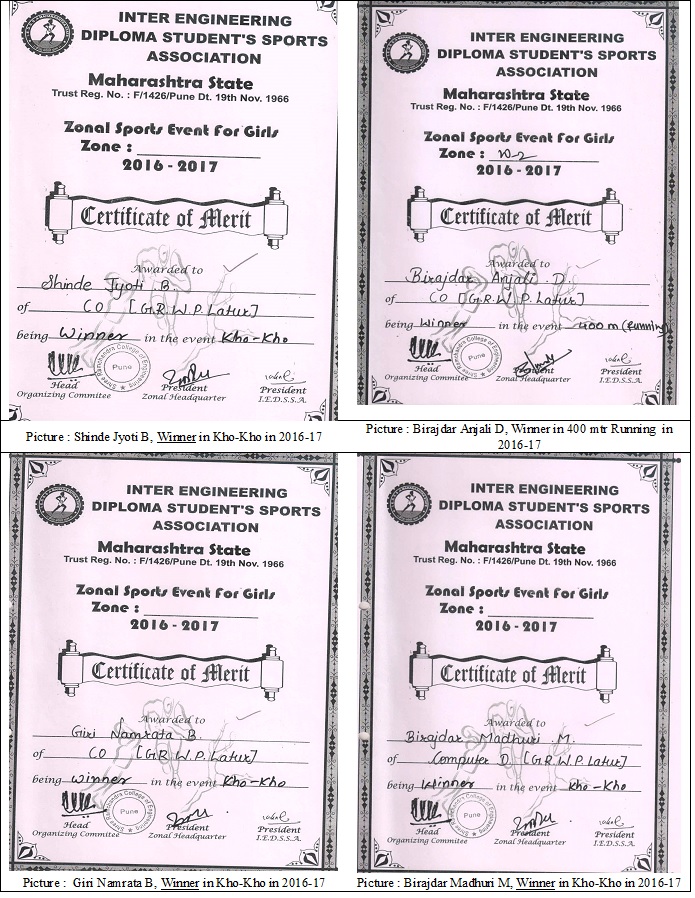 INTER ENGINEERING
DIPLOMA STUDENT'S SPORTS
ASSOCIATION
Maharashtra State
Trust Reg. No. : F/1426/Pune Dt. 19th Nov. 1966
Zonal Sports Event For Girls
Zone :
2016 - 2017
Certificate of Merit
Awarded to
Shinde Jyoti B.
of CO [G.R.W.P. Latur]
being Winner in the event Kho-Kho
Shree Ramchandra College of Engineering
Pune
Head
Organizing Commitee
President
Zonal Headquarter
President
I.E.D.S.S.A.
Picture : Shinde Jyoti B, Winner in Kho-Kho in 2016-17
INTER ENGINEERING
DIPLOMA STUDENT'S SPORTS
ASSOCIATION
Maharashtra State
Trust Reg. No. : F/1426/Pune Dt. 19th Nov. 1966
Zonal Sports Event For Girls
Zone :
2016 - 2017
Certificate of Merit
Awarded to
Birajdar Anjali D.
of CO [G.R.W.P. Latur]
being Winner in the event 400 m (running)
Shree Ramchandra College of Engineering
Pune
Head
Organizing Commitee
President
Zonal Headquarter
President
I.E.D.S.S.A.
Picture : Birajdar Anjali D, Winner in 400 mtr Running in
2016-17
INTER ENGINEERING
DIPLOMA STUDENT'S SPORTS
ASSOCIATION
Maharashtra State
Trust Reg. No. : F/1426/Pune Dt. 19th Nov. 1966
Zonal Sports Event For Girls
Zone :
2016 - 2017
Certificate of Merit
Awarded to
Giri Namrata B.
of CO [G.R.W.P. Latur]
being Winner in the event Kho-Kho
Shree Ramchandra College of Engineering
Pune
Head
Organizing Commitee
President
Zonal Headquarter
President
I.E.D.S.S.A.
Picture : Giri Namrata B, Winner in Kho-Kho in 2016-17
INTER ENGINEERING
DIPLOMA STUDENT'S SPORTS
ASSOCIATION
Maharashtra State
Trust Reg. No. : F/1426/Pune Dt. 19th Nov. 1966
Zonal Sports Event For Girls
Zone :
2016 - 2017
Certificate of Merit
Awarded to
Birajdar Madhuri .M.
of Computer D. [G.R.W.P. Latur]
being Winner in the event Kho-Kho
Shree Ramchandra College of Engineering
Pune
Head
Organizing Commitee
President
Zonal Headquarter
President
I.E.D.S.S.A.
Picture : Birajdar Madhuri M, Winner in Kho-Kho in 2016-17